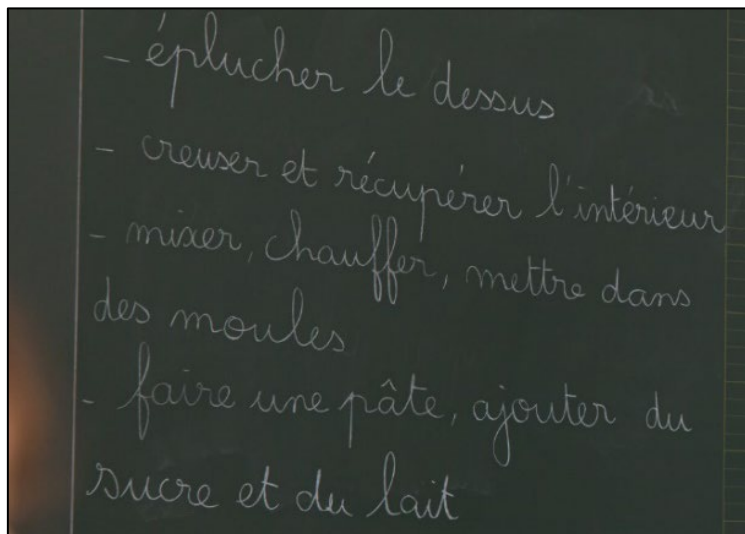 - éplucher le dessus
- creuser et récupérer l'intérieur
- mixer, chauffer, mettre dans
des moules
- faire une pâte, ajouter du
sucre et du lait